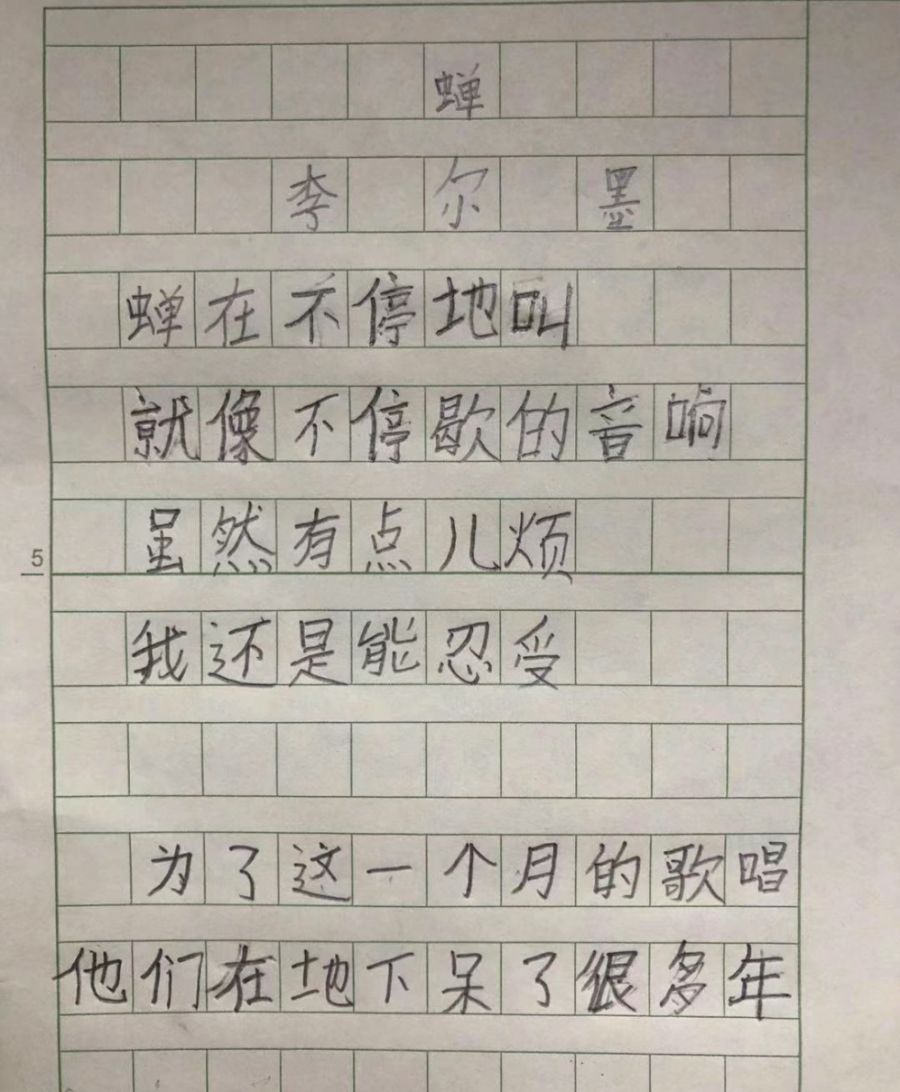 蝉
李尔墨
蝉在不停地叫
就像不停歇的音响
5
虽然有点儿烦
我还是能忍受
为了这一个月的歌唱
他们在地下呆了很多年